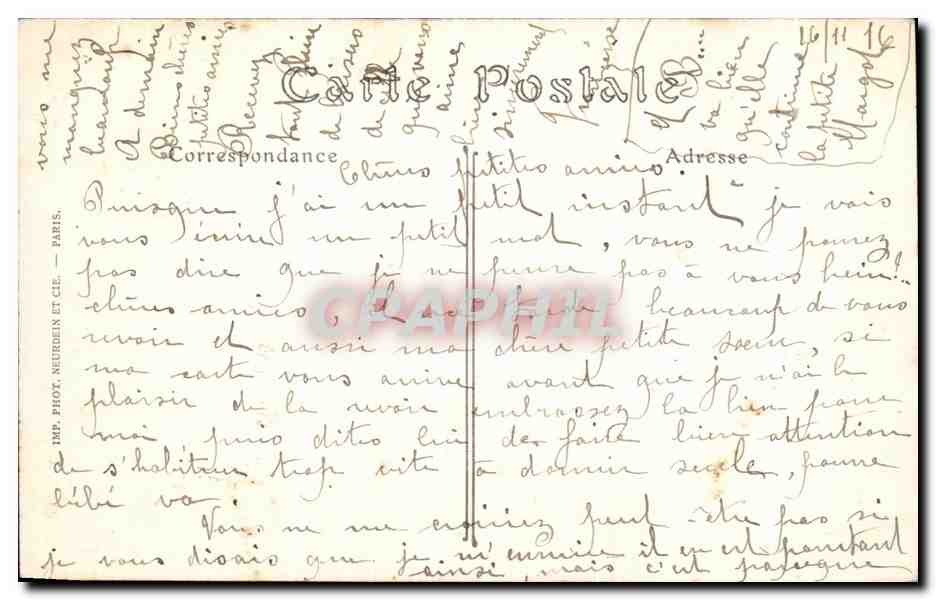 16/11 16
Carte Postale
Correspondance
Adresse
Chères petites amies.
Puisque j'ai un petit instant je vais
vous écrire un petit mot, vous ne pourrez
pas dire que je ne pense pas à vous hein!..
chères amies, Il me tarde beaucoup de vous
revoir et aussi ma chère petite soeur, si
ma carte vous arrive avant que je n'ai le
plaisir de la revoir embrassez la bien pour
moi, puis dites lui de faire bien attention
de s'habituer trop vite à dormir seule, pauvre
bébé va.
Vous ne me croiriez peut-être pas si
je vous disais que je m'ennuie il en est pourtant
ainsi, mais c'est parceque
vous me
manquez
beaucoup
A demain
chères
petites amies
Recevez
tout plein
de bisous
de
que vous
aime
bien
va bien
qu'elle
continue
la petite
Margot
IMP. PHOT. NEURDEIN ET CIE. — PARIS.
CPAPHIL